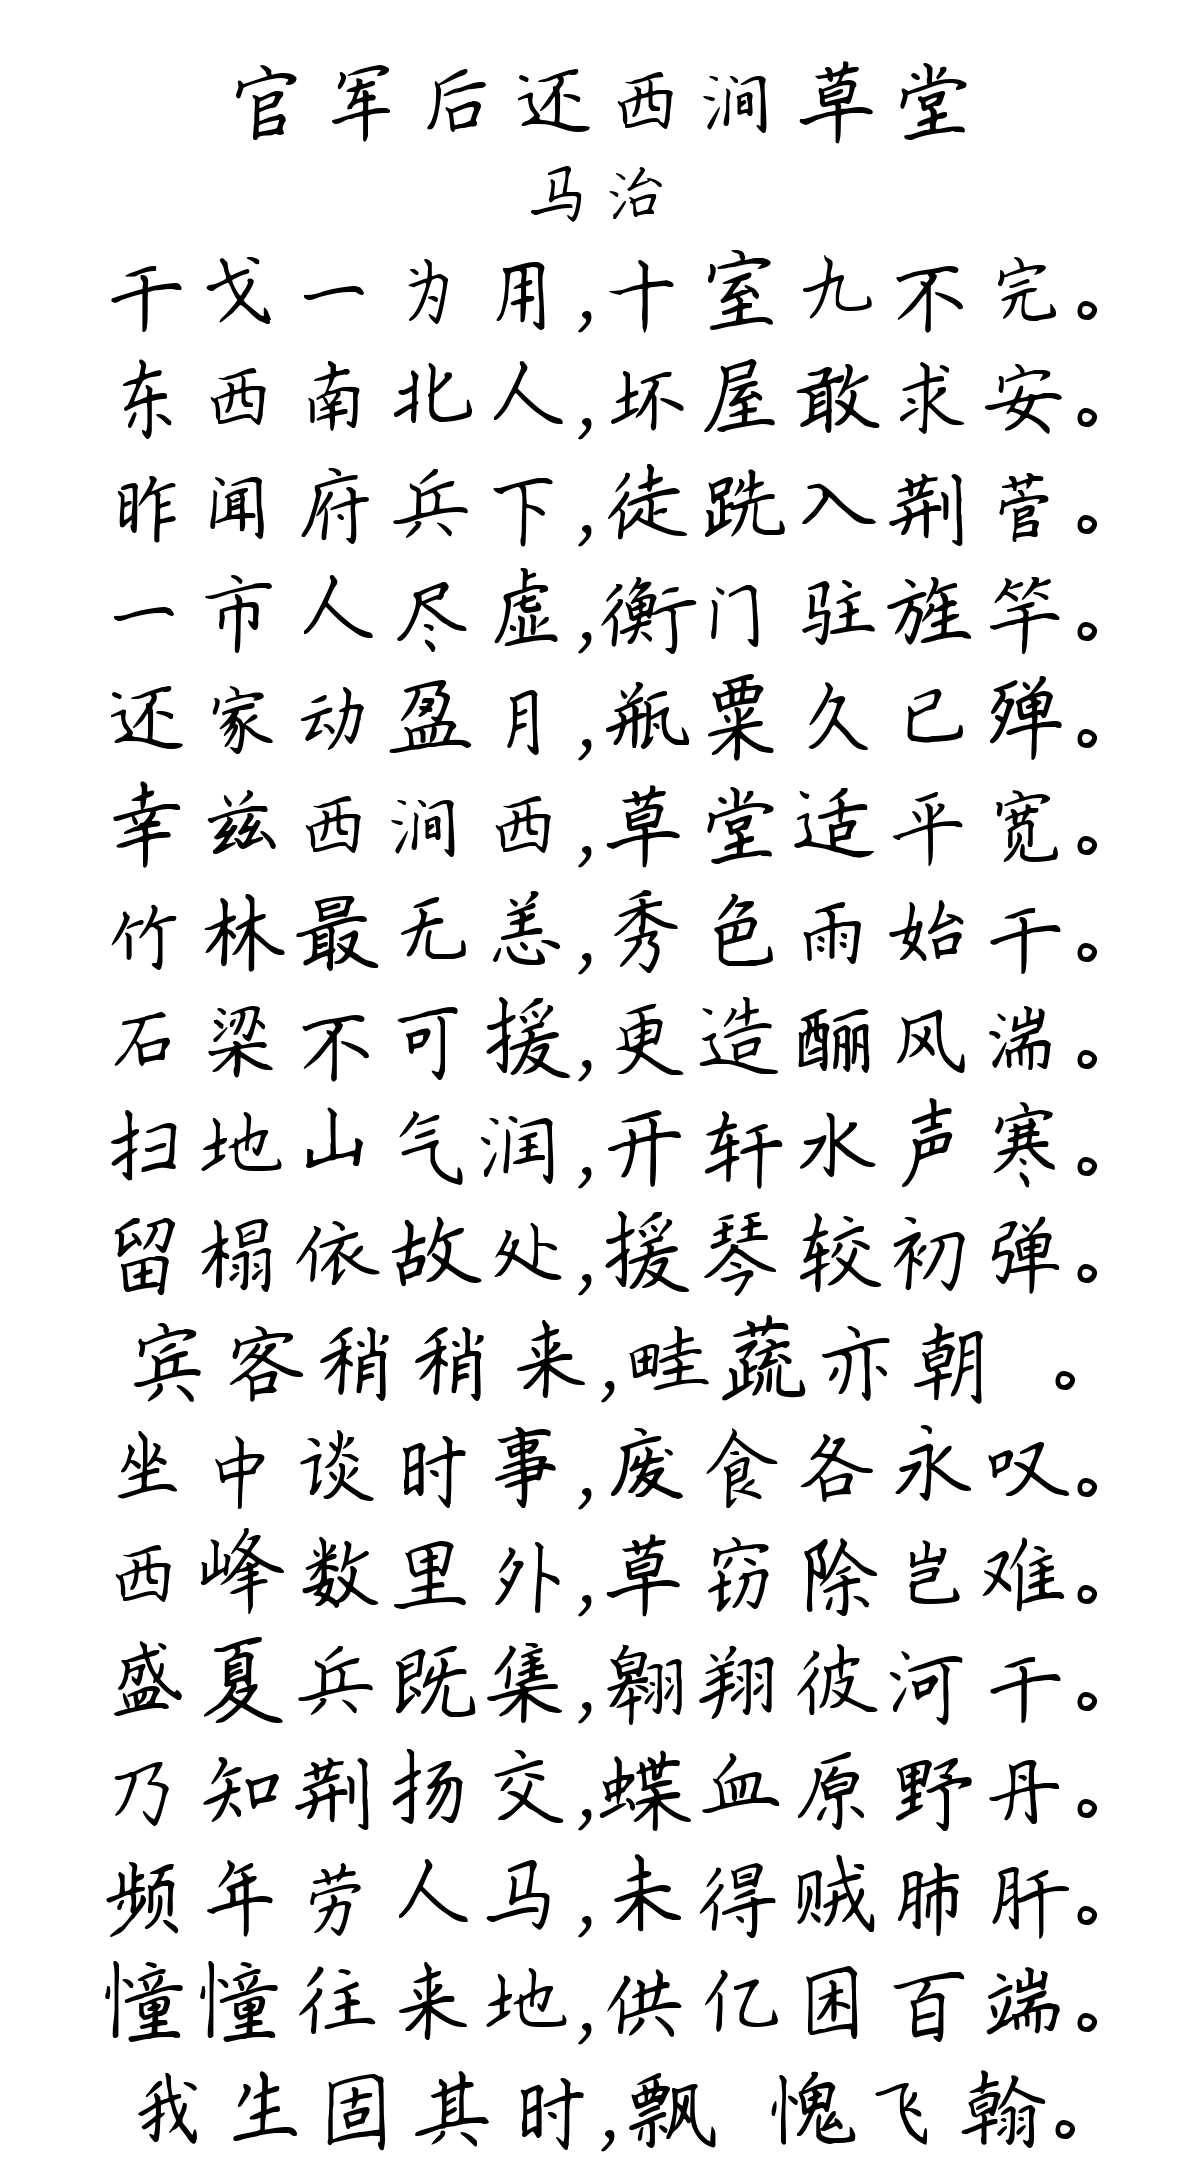 官军后还西涧草堂
马治
干戈一为用,十室九不完。
东西南北人,坏屋敢求安。
昨闻府兵下,徒跣入荆菅。
一市人尽虚,衡门驻旌竿。
还家动盈月,瓶粟久已殚。
幸兹西涧西,草堂适平宽。
竹林最无恙,秀色雨始干。
石梁不可援,更造酾风湍。
扫地山气润,开轩水声寒。
留榻依故处,援琴较初弹。
宾客稍稍来,畦蔬亦朝 。
坐中谈时事,废食各永叹。
西峰数里外,草窃除岂难。
盛夏兵既集,翱翔彼河干。
乃知荆扬交,蝶血原野丹。
频年劳人马,未得贼肺肝。
憧憧往来地,供亿困百端。
我生固其时,飘 愧飞翰。